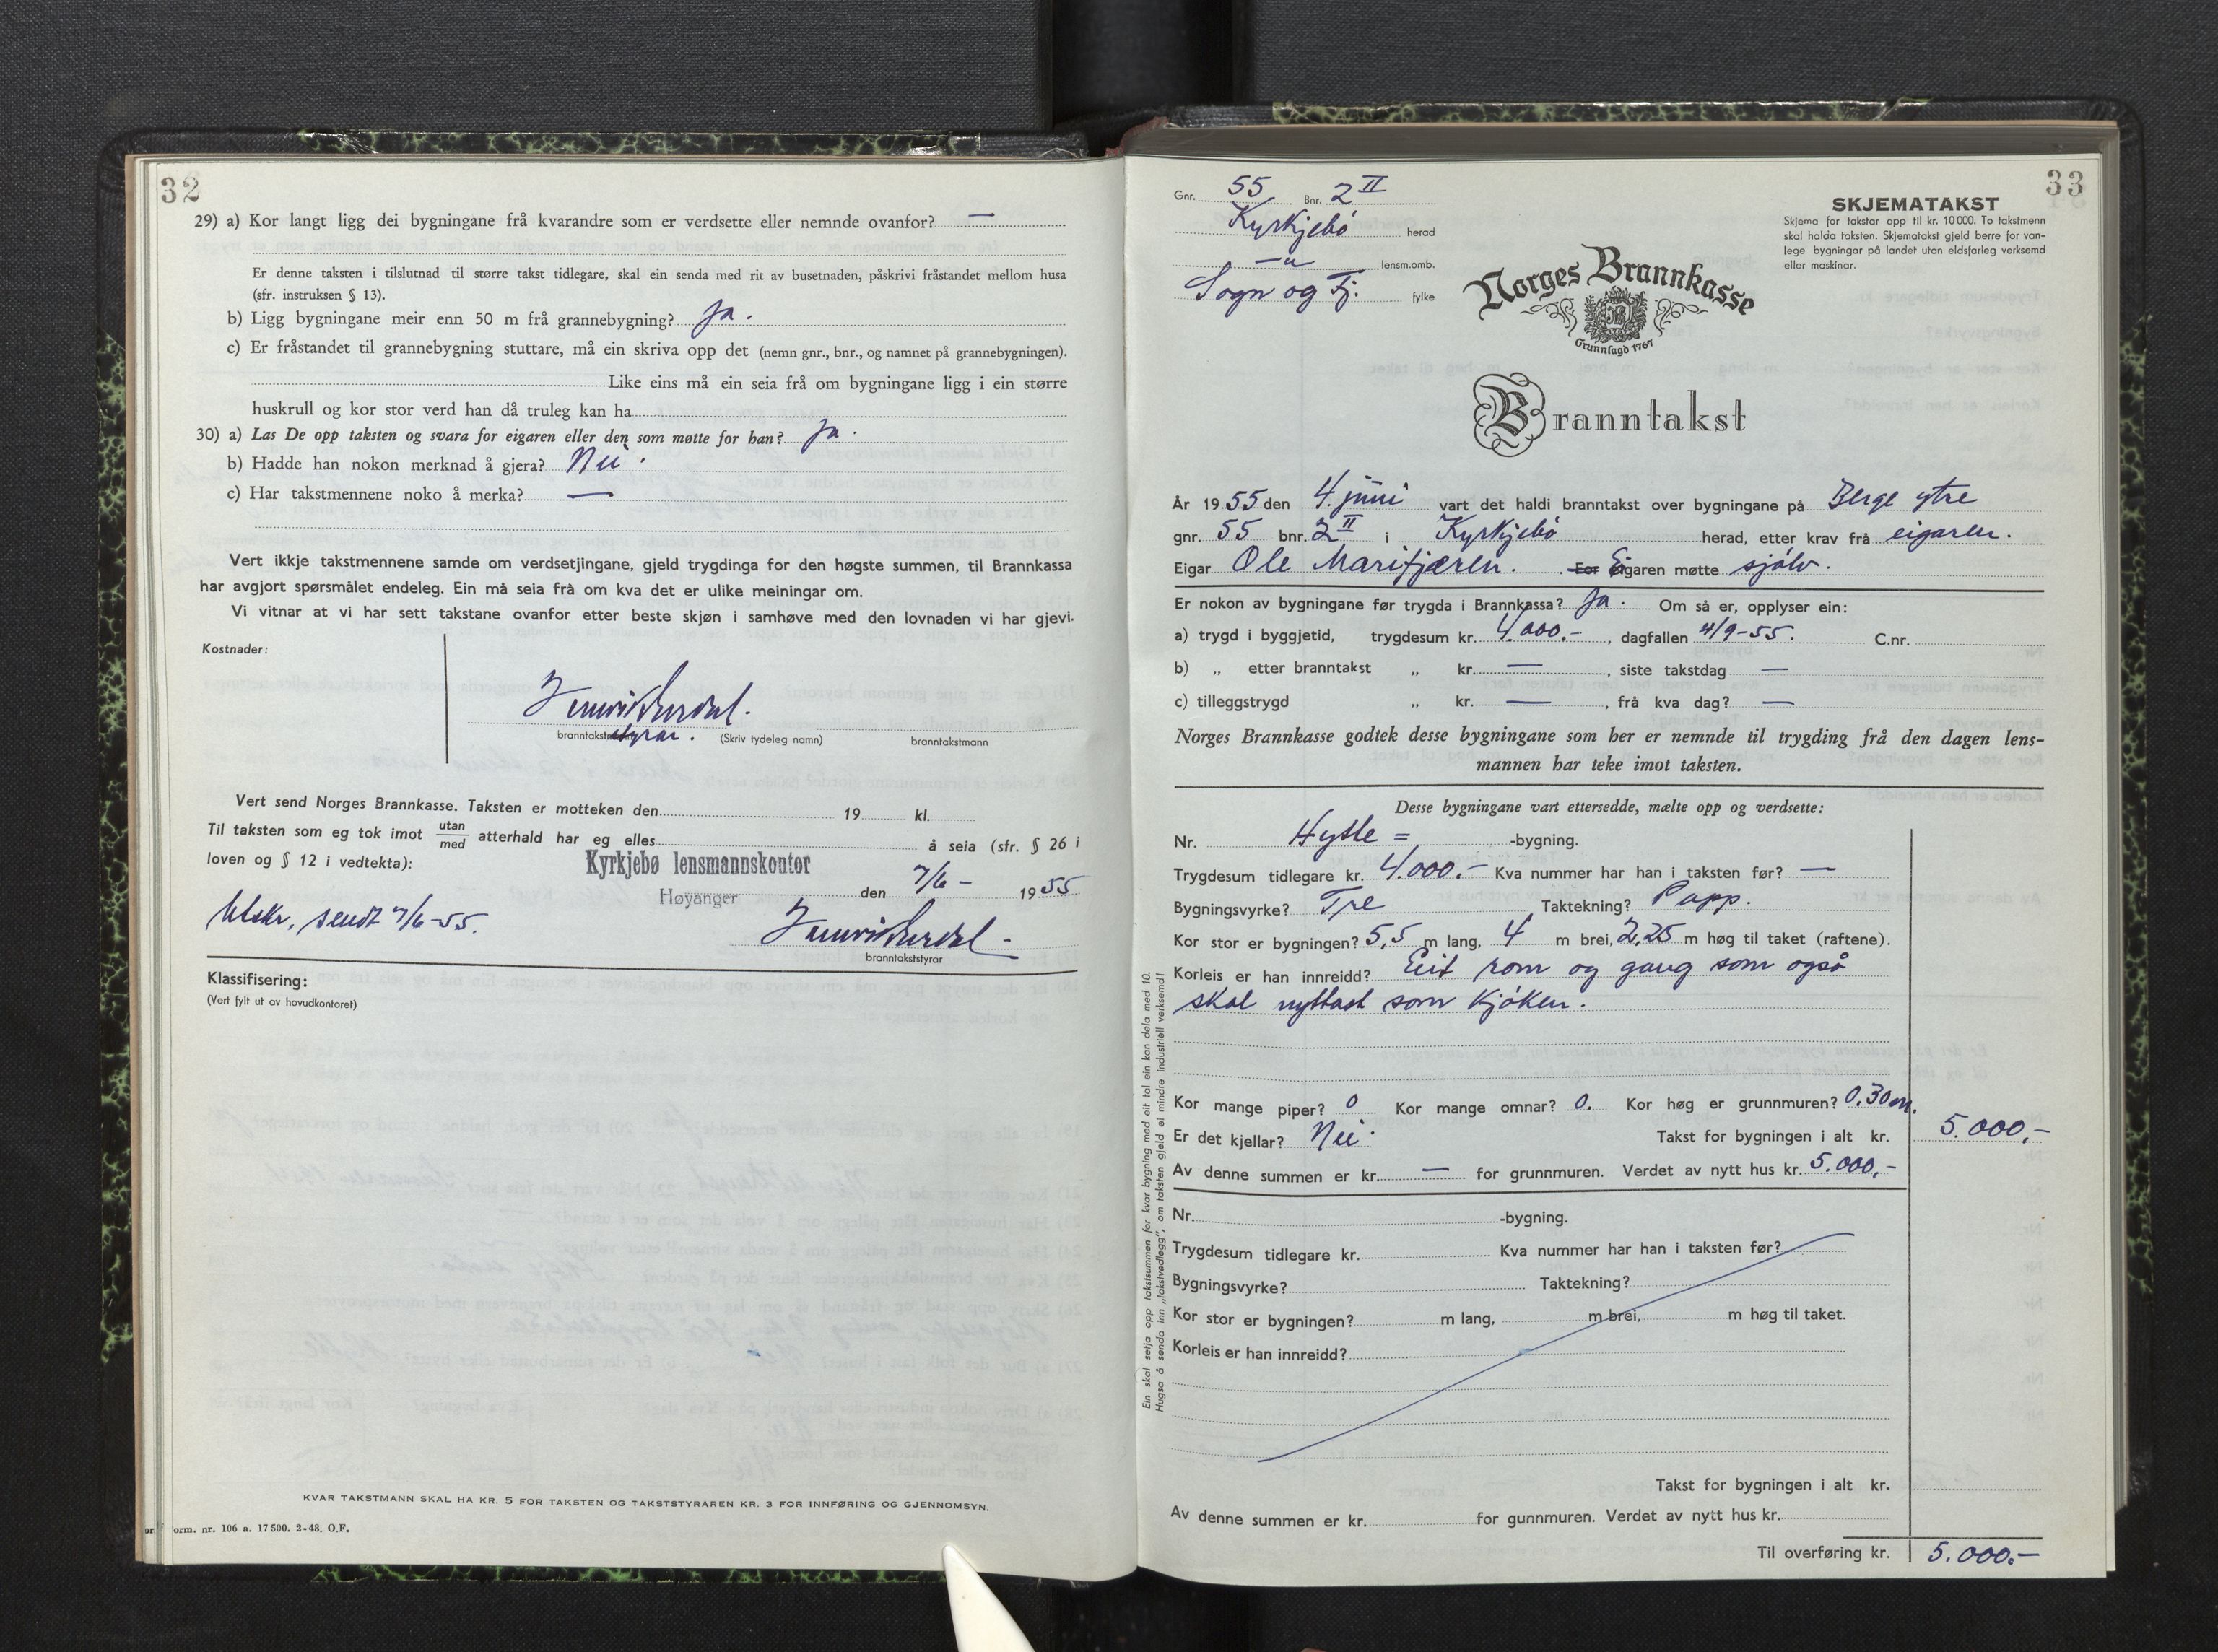 32
29) a) Kor langt ligg dei bygningane frå kvarandre som er verdsette eller nemnde ovanfor? —
Er denne taksten i tilslutnad til større takst tidlegare, skal ein senda med rit av busetnaden, påskrivi fråstandet mellom husa
(sfr. instruksen § 13).
b) Ligg bygningane meir enn 50 m frå grannebygning? Ja.
c) Er fråstandet til grannebygning stuttare, må ein skriva opp det (nemn gnr., bnr., og namnet på grannebygningen).
Like eins må ein seia frå om bygningane ligg i ein større
huskrull og kor stor verd han då truleg kan ha
30) a) Las De opp taksten og svara for eigaren eller den som møtte for han? Ja.
b) Hadde han nokon merknad å gjera? Nei.
c) Har takstmennene noko å merka? —
Vert ikkje takstmennene samde om verdsetjingane, gjeld trygdinga for den høgste summen, til Brannkassa
har avgjort spørsmålet endeleg. Ein må seia frå om kva det er ulike meiningar om.
Vi vitnar at vi har sett takstane ovanfor etter beste skjøn i samhøve med den lovnaden vi har gjevi.
Kostnader:
styrar.
(Skriv tydeleg namn) branntakstmann
Vert send Norges Brannkasse. Taksten er motteken den 19 kl.
Til taksten som eg tok imot utan/med atterhald har eg elles å seia (sfr. § 26 i
loven og § 12 i vedtekta):
Kyrkjebø lensmannskontor
Høyanger den 7/6 – 1955
Utskr. sendt 7/6-55.
branntakststyrar
Klassifisering:
(Vert fylt ut av hovudkontoret)
KVAR TAKSTMANN SKAL HA KR. 5 FOR TAKSTEN OG TAKSTSTYRAREN KR. 3 FOR INNFØRING OG GJENNOMSYN.
orm. nr. 106 a. 17 500. 2-48. O.F.
33
Gnr. 55 Bnr. 2 II
Kyrkjebø herad
— " — lensm.omb.
Sogn og Fj. fylke
SKJEMATAKST
Skjema for takstar opp til kr. 10 000. To takstmenn
skal halda taksten. Skjematakst gjeld berre for van-
lege bygningar på landet utan eldsfarleg verksemd
eller maskinar.
Norges Brannkasse
Grunnlagd 1767
Branntakst
År 1955 den 4. juni vart det haldi branntakst over bygningane på Berge ytre
gnr. 55 bnr. 2 II i Kyrkjebø herad, etter krav frå eigaren.
Eigar Ole Marifjæren. For Eigaren møtte sjølv.
Er nokon av bygningane før trygda i Brannkassa? Ja. Om så er, opplyser ein:
a) trygd i byggjetid, trygdesum kr. 4.000.-, dagfallen 4/9-55. C.nr.
b) „ etter branntakst „ kr. —, siste takstdag —
c) tilleggstrygd „ kr. —, frå kva dag? —
Norges Brannkasse godtek desse bygningane som her er nemnde til trygding frå den dagen lens-
mannen har teke imot taksten.
Desse bygningane vart ettersedde, mælte opp og verdsette:
Nr. Hytte = -bygning.
Trygdesum tidlegare kr. 4.000.- Kva nummer har han i taksten før? —
Bygningsvyrke? Tre Taktekning? Papp.
Kor stor er bygningen? 5,5 m lang, 4 m brei, 2,25 m høg til taket (raftene).
Korleis er han innreidd? Eit rom og gang som også
skal nyttast som kjøken.
Kor mange piper? 0 Kor mange omnar? 0. Kor høg er grunnmuren? 0.30 m.
Er det kjellar? Nei. Takst for bygningen i alt kr. 5.000,-
Av denne summen er kr. — for grunnmuren. Verdet av nytt hus kr. 5.000,-
Nr. -bygning.
Trygdesum tidlegare kr. Kva nummer har han i taksten før?
Bygningsvyrke? Taktekning?
Kor stor er bygningen? m lang, m brei, m høg til taket.
Korleis er han innreidd?
Takst for bygningen i alt kr.
Av denne summen er kr. for gunnmuren. Verdet av nytt hus kr.
Til overføring kr. 5.000.-
Ein skal setja opp takstsummen for kvar bygning med eit tal ein kan dela med 10.
Hugsa å senda inn „takstvedlegg", om taksten gjeld ei mindre industriell verksemd!